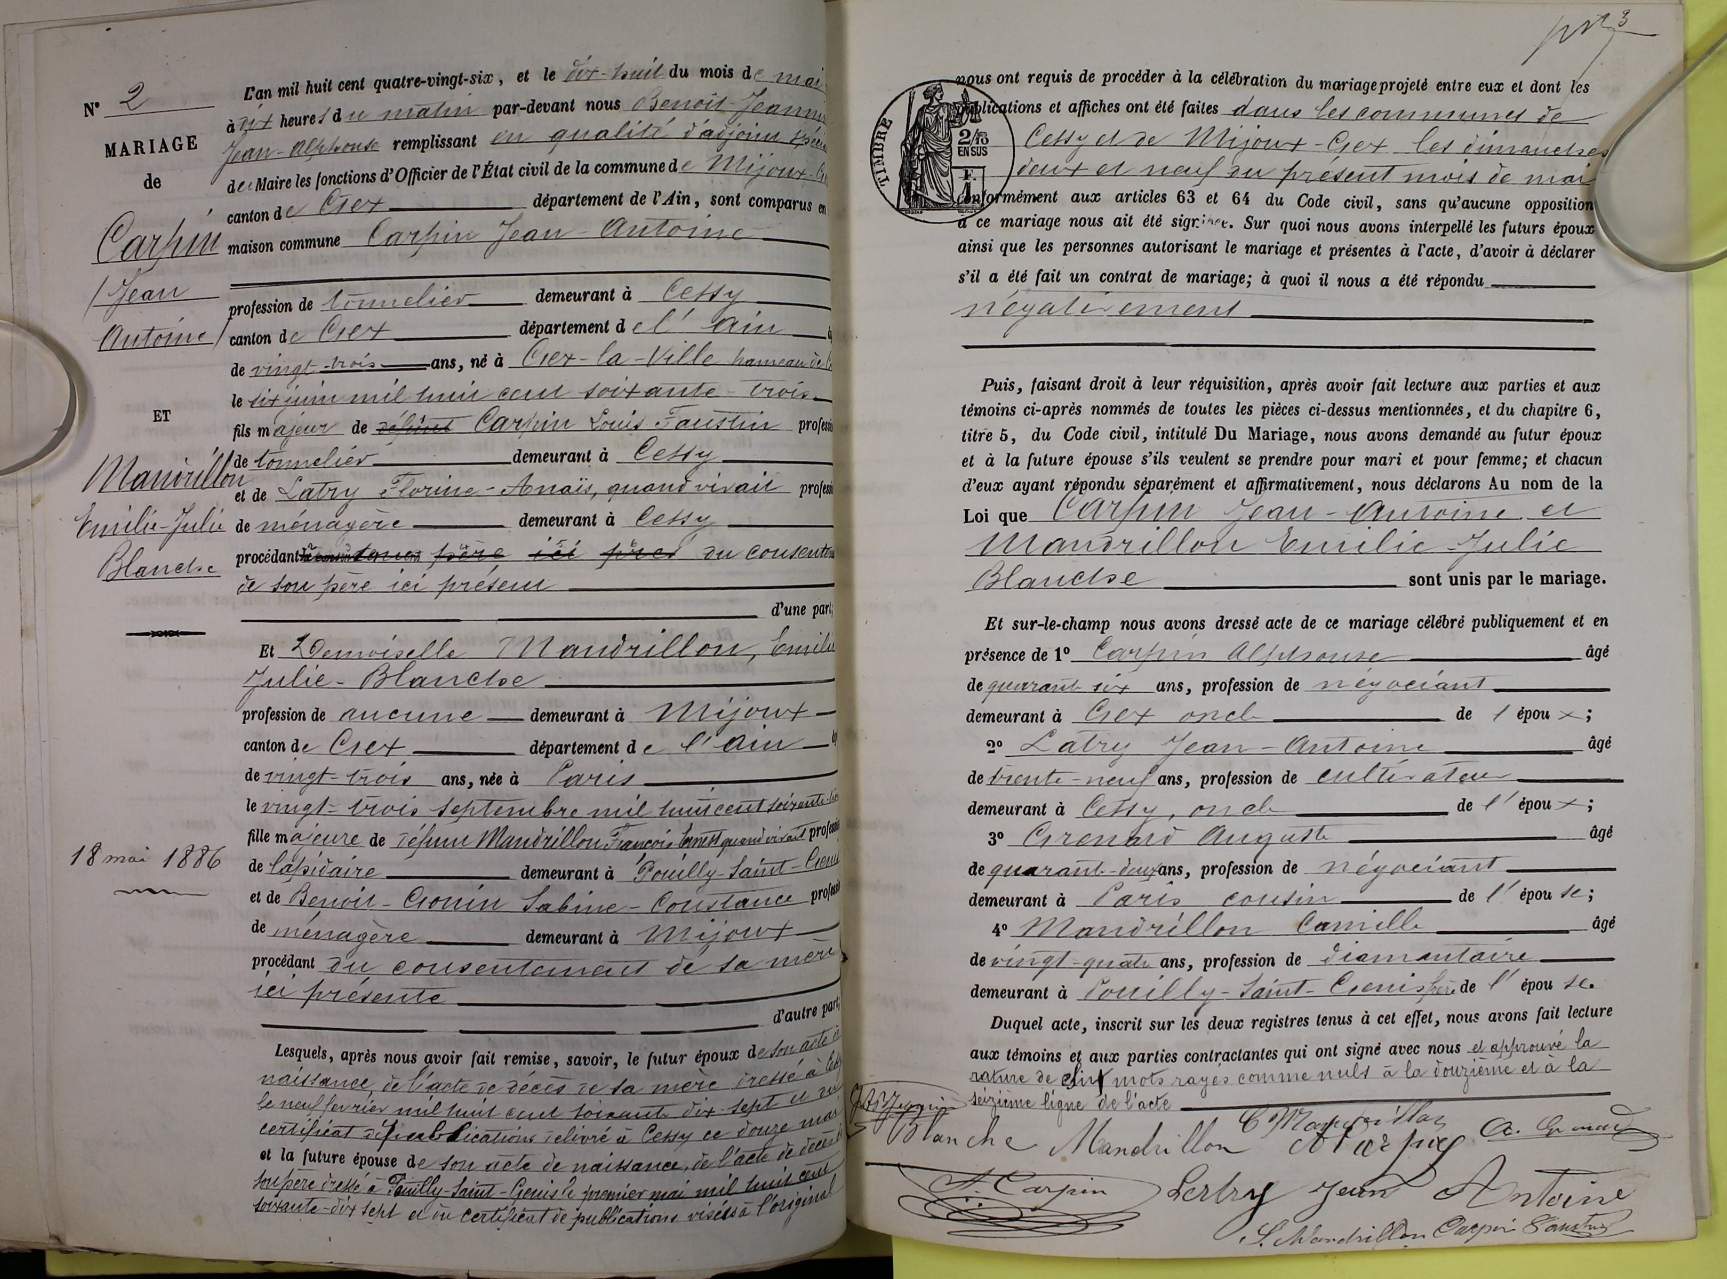 N° 2
MARIAGE
de
Carpin
Jean
Antoine
ET
Mandrillon
Emilie-Julie
Blanche
18 mai 1886
L'an mil huit cent quatre-vingt-six, et le dix-huit du mois de mai
à dix heures du matin par-devant nous Benoit-Jeannin
Jean-Alphonse remplissant en qualité d'adjoint spécial
de Maire les fonctions d'Officier de l'État civil de la commune de Mijoux-Gex
canton de Gex département de l'Ain, sont comparus en
maison commune Carpin Jean-Antoine
profession de tonnelier demeurant à Cessy
canton de Gex département de l'Ain
de vingt-trois ans, né à Gex-la-Ville hameau de
le six juin mil huit cent soixante-trois
fils majeur de défunt Carpin Louis Faustin profession
de tonnelier demeurant à Cessy
et de Latry Florine-Anaïs, quand vivait profession
de ménagère demeurant à Cessy
procédant père ici du consentement
de son père ici présent
d'une part;
Et Demoiselle Mandrillon, Emilie
Julie-Blanche
profession de aucune demeurant à Mijoux
canton de Gex département de l'Ain
de vingt-trois ans, née à Paris
le vingt-trois septembre mil huit cent soixante-
fille majeure de défunt Mandrillon François Ernest quand vivait profession
de lapidaire demeurant à Pouilly-Saint-Genis
et de Benoit-Gonin Sabine-Constance profession
de ménagère demeurant à Mijoux
procédant du consentement de sa mère
ici présente
d'autre part;
Lesquels, après nous avoir fait remise, savoir, le futur époux de son acte de
naissance, de l'acte de décès de sa mère dressé à Cessy
le neuf février mil huit cent soixante dix-sept et du
certificat de publications délivré à Cessy ce douze mai
et la future épouse de son acte de naissance, de l'acte de décès de
son père dressé à Pouilly-Saint-Genis le premier mai mil huit cent
soixante-dix sept et du certificat de publications visées à l'original
3
TIMBRE
2/10
EN SUS
nous ont requis de procéder à la célébration du mariage projeté entre eux et dont les
publications et affiches ont été faites dans les communes de
Cessy et de Mijoux-Gex les dimanches
deux et neuf du présent mois de mai
conformément aux articles 63 et 64 du Code civil, sans qu'aucune opposition
à ce mariage nous ait été signifiée. Sur quoi nous avons interpellé les futurs époux
ainsi que les personnes autorisant le mariage et présentes à l'acte, d'avoir à déclarer
s'il a été fait un contrat de mariage; à quoi il nous a été répondu
négativement
Puis, faisant droit à leur réquisition, après avoir fait lecture aux parties et aux
témoins ci-après nommés de toutes les pièces ci-dessus mentionnées, et du chapitre 6,
titre 5, du Code civil, intitulé Du Mariage, nous avons demandé au futur époux
et à la future épouse s'ils veulent se prendre pour mari et pour femme; et chacun
d'eux ayant répondu séparément et affirmativement, nous déclarons Au nom de la
Loi que Carpin Jean-Antoine et
Mandrillon Emilie-Julie
Blanche sont unis par le mariage.
Et sur-le-champ nous avons dressé acte de ce mariage célébré publiquement et en
présence de 1° Carpin Alphonse âgé
de quarante-six ans, profession de négociant
demeurant à Gex oncle de l'époux;
2° Latry Jean-Antoine âgé
de trente-neuf ans, profession de cultivateur
demeurant à Cessy, oncle de l'époux;
3° Grenard Auguste âgé
de quarante-deux ans, profession de négociant
demeurant à Paris cousin de l'épouse;
4° Mandrillon Camille âgé
de vingt-quatre ans, profession de diamantaire
demeurant à Pouilly-Saint-Genis frère de l'épouse.
Duquel acte, inscrit sur les deux registres tenus à cet effet, nous avons fait lecture
aux témoins et aux parties contractantes qui ont signé avec nous et approuvé la
rature de cinq mots rayés comme nuls à la douzième et à la
seizième ligne de l'acte
Blanche Mandrillon C Mandrillon A Carpin A. Grenard
J. Carpin Lertry Jean Antoine
S. Mandrillon Carpin Faustin